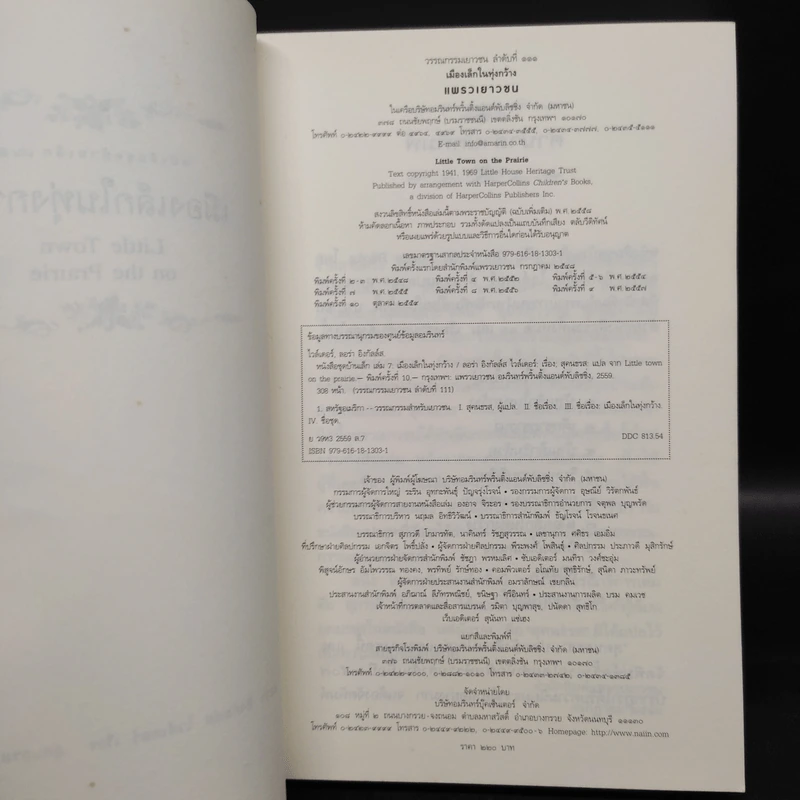 วรรณกรรมเยาวชน ลำดับที่ ๑๑๑
เมืองเล็กในทุ่งกว้าง
แพรวเยาวชน
ในเครือบริษัทอมรินทร์พริ้นติ้งแอนด์พับลิชชิ่ง จำกัด (มหาชน)
๓๗๘ ถนนชัยพฤกษ์ (บรมราชชนนี) เขตตลิ่งชัน กรุงเทพฯ ๑๐๑๗๐
โทรศัพท์ ๐-๒๔๒๒-๙๙๙๙ ต่อ ๔๙๖๔, ๔๙๖๙ โทรสาร ๐-๒๔๓๔-๓๕๕๕, ๐-๒๔๓๔-๓๗๗๗, ๐-๒๔๓๕-๕๑๑๑
E-mail: info@amarin.co.th
Little Town on the Prairie
Text copyright 1941, 1969 Little House Heritage Trust
Published by arrangement with HarperCollins Children's Books,
a division of HarperCollins Publishers Inc.
สงวนลิขสิทธิ์หนังสือเล่มนี้ตามพระราชบัญญัติ (ฉบับเพิ่มเติม) พ.ศ.๒๕๕๘
ห้ามคัดลอกเนื้อหา ภาพประกอบ รวมทั้งดัดแปลงเป็นแถบบันทึกเสียง ตลับวีดิทัศน์
หรือเผยแพร่ด้วยรูปแบบและวิธีการอื่นใดก่อนได้รับอนุญาต
เลขมาตรฐานสากลประจำหนังสือ 979-616-18-1303-1
พิมพ์ครั้งแรกโดยสำนักพิมพ์แพรวเยาวชน กรกฎาคม ๒๕๔๘
พิมพ์ครั้งที่ ๒-๓ พ.ศ.๒๕๔๘ พิมพ์ครั้งที่ ๔ พ.ศ.๒๕๕๒ พิมพ์ครั้งที่ ๕-๖ พ.ศ.๒๕๕๔
พิมพ์ครั้งที่ ๗ พ.ศ.๒๕๕๕ พิมพ์ครั้งที่ ๘ พ.ศ.๒๕๕๖ พิมพ์ครั้งที่ ๙ พ.ศ.๒๕๕๗
พิมพ์ครั้งที่ ๑๐ ตุลาคม ๒๕๕๙
ข้อมูลทางบรรณานุกรมของศูนย์ข้อมูลอมรินทร์
ไวล์เดอร์, ลอร่า อิงกัลล์ส.
หนังสือชุดบ้านเล็ก เล่ม 7: เมืองเล็กในทุ่งกว้าง / ลอร่า อิงกัลล์ส ไวล์เดอร์: เรื่อง; สุคนธรส: แปล จาก Little town
on the prairie.-- พิมพ์ครั้งที่ 10.-- กรุงเทพฯ: แพรวเยาวชน อมรินทร์พริ้นติ้งแอนด์พับลิชชิ่ง, 2559.
308 หน้า. (วรรณกรรมเยาวชน ลำดับที่ 111)
1. สหรัฐอเมริกา -- วรรณกรรมสำหรับเยาวชน. I. สุคนธรส, ผู้แปล. II. ชื่อเรื่อง. III. ชื่อเรื่อง: เมืองเล็กในทุ่งกว้าง.
IV. ชื่อชุด.
ย ว9ห3 2559 ล.7 DDC 813.54
ISBN 979-616-18-1303-1
เจ้าของ ผู้พิมพ์ผู้โฆษณา บริษัทอมรินทร์พริ้นติ้งแอนด์พับลิชชิ่ง จำกัด (มหาชน)
กรรมการผู้จัดการใหญ่ ระริน อุทกะพันธุ์ ปัญจรุ่งโรจน์ • รองกรรมการผู้จัดการ อุษณีย์ วิรัตกพันธ์
ผู้ช่วยกรรมการผู้จัดการสายงานหนังสือเล่ม องอาจ จิระอร • รองบรรณาธิการอำนวยการ จตุพล บุญพรัด
บรรณาธิการบริหาร นฤมล อิทธิวิวัฒน์ • บรรณาธิการสำนักพิมพ์ ธัญโรจน์ โรจนธเนศ
บรรณาธิการ สุภาวดี โกมารทัต, นาคินทร์ รัชฎสุวรรณ • เลขานุการ ศศิธร เอมอิ่ม
ที่ปรึกษาฝ่ายศิลปกรรม เอกจิตร โพธิ์ปลั่ง • ผู้จัดการฝ่ายศิลปกรรม พีระพงศ์ โพสินธุ์ • ศิลปกรรม ประภาวดี มุสิกรักษ์
ผู้อำนวยการฝ่ายจัดการสำนักพิมพ์ ชัชฎา พรหมเลิศ • ซับเอดิเตอร์ มนทิรา วงศ์ชะอุ่ม
พิสูจน์อักษร อิ่มไพวรรณ ทองคง, พรทิพย์ รักษ์ทอง • คอมพิวเตอร์ อโณทัย สุทธิรักษ์, สุนิดา ภาวะทรัพย์
ผู้จัดการฝ่ายประสานงานสำนักพิมพ์ อมราลักษณ์ เชยกลิ่น
ประสานงานสำนักพิมพ์ อภิฌาณ์ ลีภัทรพณิชย์, ขนิษฐา ศรีอินทร์ • ประสานงานการผลิต บรม คมเวช
เจ้าหน้าที่การตลาดและสื่อสารแบรนด์ รมิดา บุญพาสุข, ปนัดดา สุทธิโก
เว็บเอดิเตอร์ สุนันทา แซ่เฮง
แยกสีและพิมพ์ที่
สายธุรกิจโรงพิมพ์ บริษัทอมรินทร์พริ้นติ้งแอนด์พับลิชชิ่ง จำกัด (มหาชน)
๓๗๖ ถนนชัยพฤกษ์ (บรมราชชนนี) เขตตลิ่งชัน กรุงเทพฯ ๑๐๑๗๐
โทรศัพท์ ๐-๒๔๒๒-๙๐๐๐, ๐-๒๘๘๒-๑๐๑๐ โทรสาร ๐-๒๔๓๓-๒๗๔๒, ๐-๒๔๓๔-๑๓๘๕
จัดจำหน่ายโดย
บริษัทอมรินทร์บุ๊คเซ็นเตอร์ จำกัด
๑๐๘ หมู่ที่ ๒ ถนนบางกรวย-จงถนอม ตำบลมหาสวัสดิ์ อำเภอบางกรวย จังหวัดนนทบุรี ๑๑๑๓๐
โทรศัพท์ ๐-๒๔๒๓-๙๙๙๙ โทรสาร ๐-๒๔๔๙-๙๒๒๒, ๐-๒๔๔๙-๙๕๐๐-๖ Homepage: http://www.naiin.com
ราคา ๒๒๐ บาท